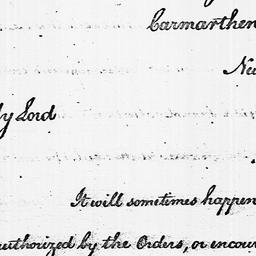 Carmarthen
y Lord
It will sometimes happen
authorized by the Orders, or encour